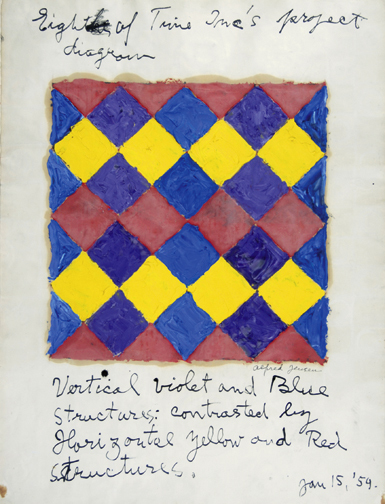 Eighth of Time Inc's project
diagram
Alfred Jensen
Vertical violet and Blue
structures; contrasted by
Horizontal yellow and Red
structures.
Jan 15, '59.